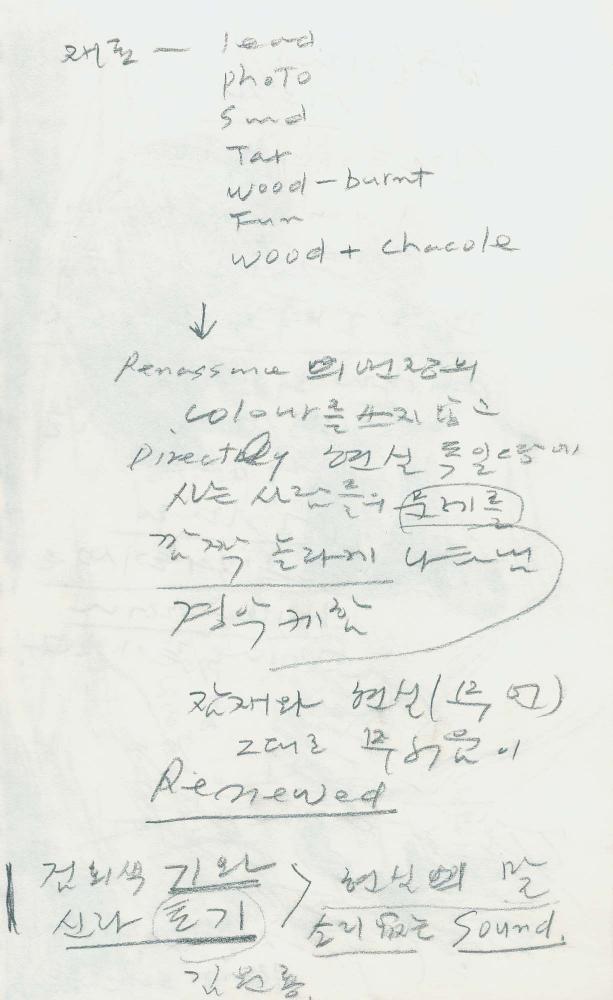 재료 — lead
photo
Sand
Tar
wood - burnt
Fun
wood + chacole
↓
Renassance 의
colour를 쓰지 않고
Directly 현실 독일땅에
사는 사람들의 문제를
깜짝 놀라게 나타냄
경악케함
잠재와 현실(죽 먼)
그대로
Renewed
검회색 기와 > 현실의 말
신라 토기 소리 없는 Sound.
김원룡